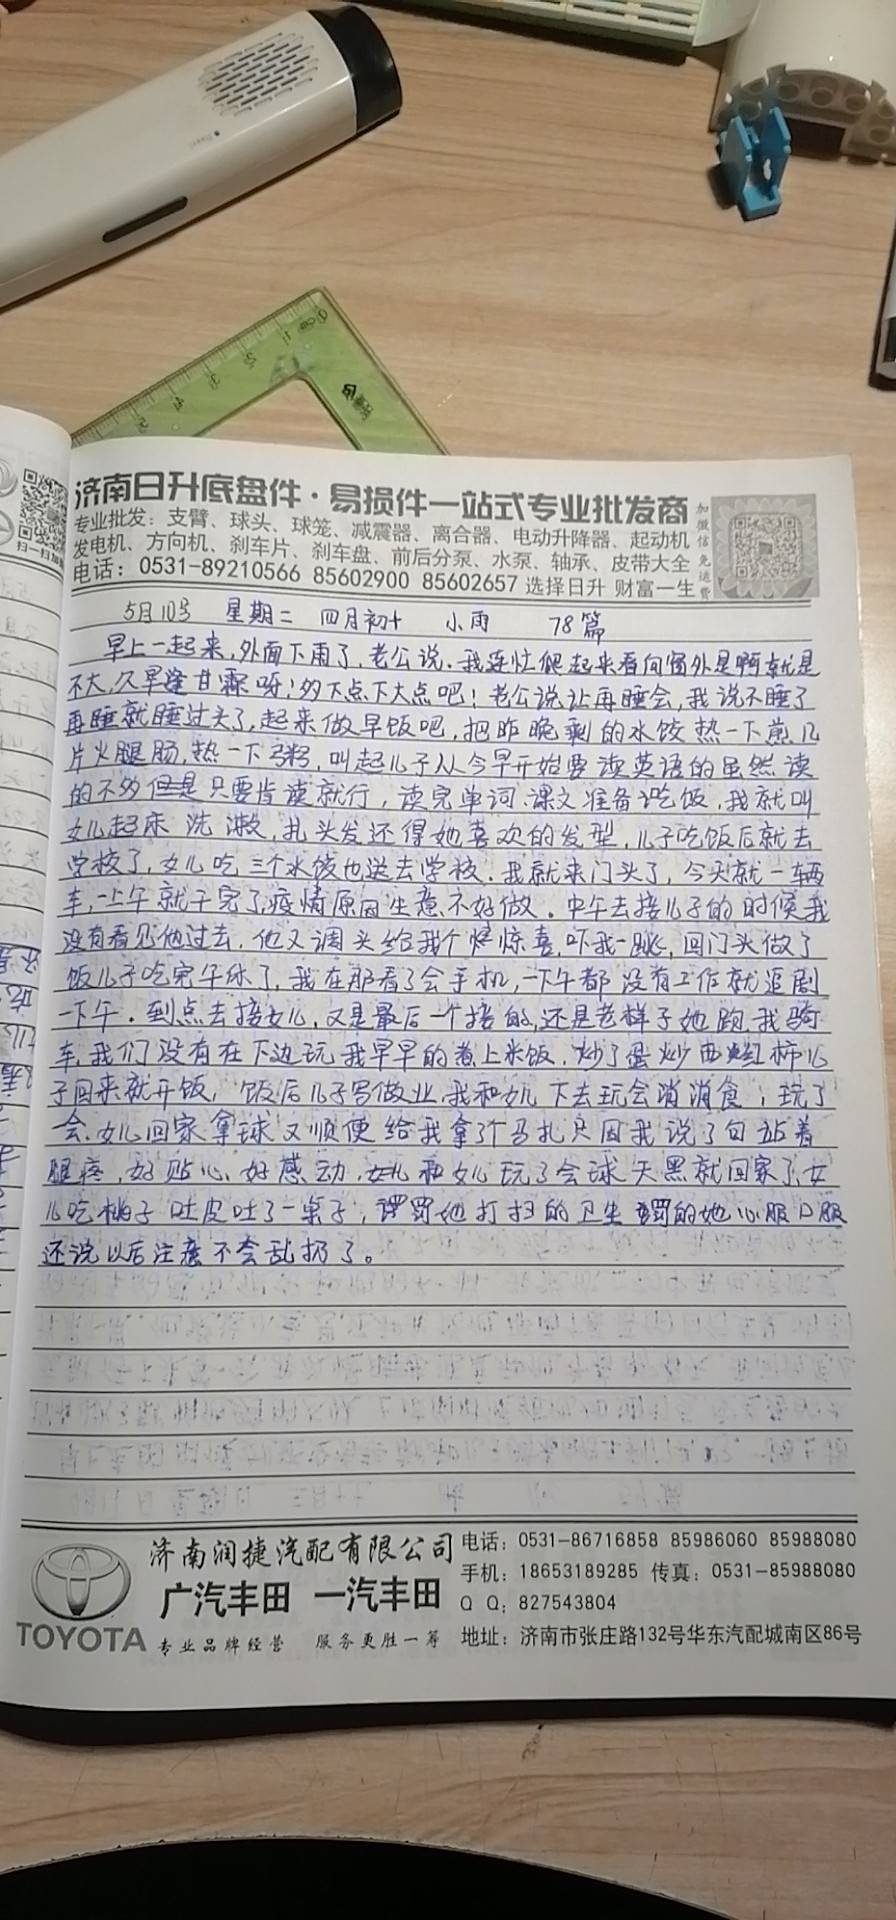 济南日升底盘件·易损件一站式专业批发商
专业批发：支臂、球头、球笼、减震器、离合器、电动升降器、起动机
发电机、方向机、刹车片、刹车盘、前后分泵、水泵、轴承、皮带大全
电话：0531-89210566 85602900 85602657 选择日升 财富一生
加微信免运费
扫一扫加
5月10号 星期二 四月初十 小雨 78篇
早上一起来，外面下雨了，老公说．我连忙爬起来看向窗外是啊就是
不大，久旱逢甘霖呀！多下点下大点吧！老公说让再睡会，我说不睡了
再睡就睡过头了，起来做早饭吧，把昨晚剩的水饺热一下煎几
片火腿肠，热一下粥，叫起儿子从今早开始要读英语的虽然读
的不多但是只要肯读就行，读完单词、课文准备吃饭，我就叫
女儿起床 洗漱，扎头发还得她喜欢的发型，儿子吃饭后就去
学校了，女儿吃三个水饺也送去学校．我就来门头了，今天就一辆
车，一上午就干完了，疫情原因生意不好做．中午去接儿子的时候我
没有看见他过去，他又调头给我个惊喜，吓我一跳，回门头做了
饭儿子吃完午休了，我在那看了会手机，一下午都没有工作就追剧
一下午．到点去接女儿，又是最后一个接的，还是老样子她跑，我骑
车，我们没有在下边玩 我早早的煮上米饭，炒了蛋炒西红柿儿
子回来就开饭，饭后儿子写做业，我和女儿下去玩会消消食，玩了
一会、女儿回家拿球又顺便给我拿了个马扎只因我说了句站着
腿疼，好贴心、好感动，和女儿玩了会球天黑就回家了，女
儿吃桃子吐皮吐了一桌子，罚她打扫的卫生 罚的她心服口服
还说以后注意不会乱扔了。
济南润捷汽配有限公司
广汽丰田 一汽丰田
TOYOTA
专业品牌经营 服务更胜一筹
电话：0531-86716858 85986060 85988080
手机：18653189285 传真：0531-85988080
Q Q：827543804
地址：济南市张庄路132号华东汽配城南区86号